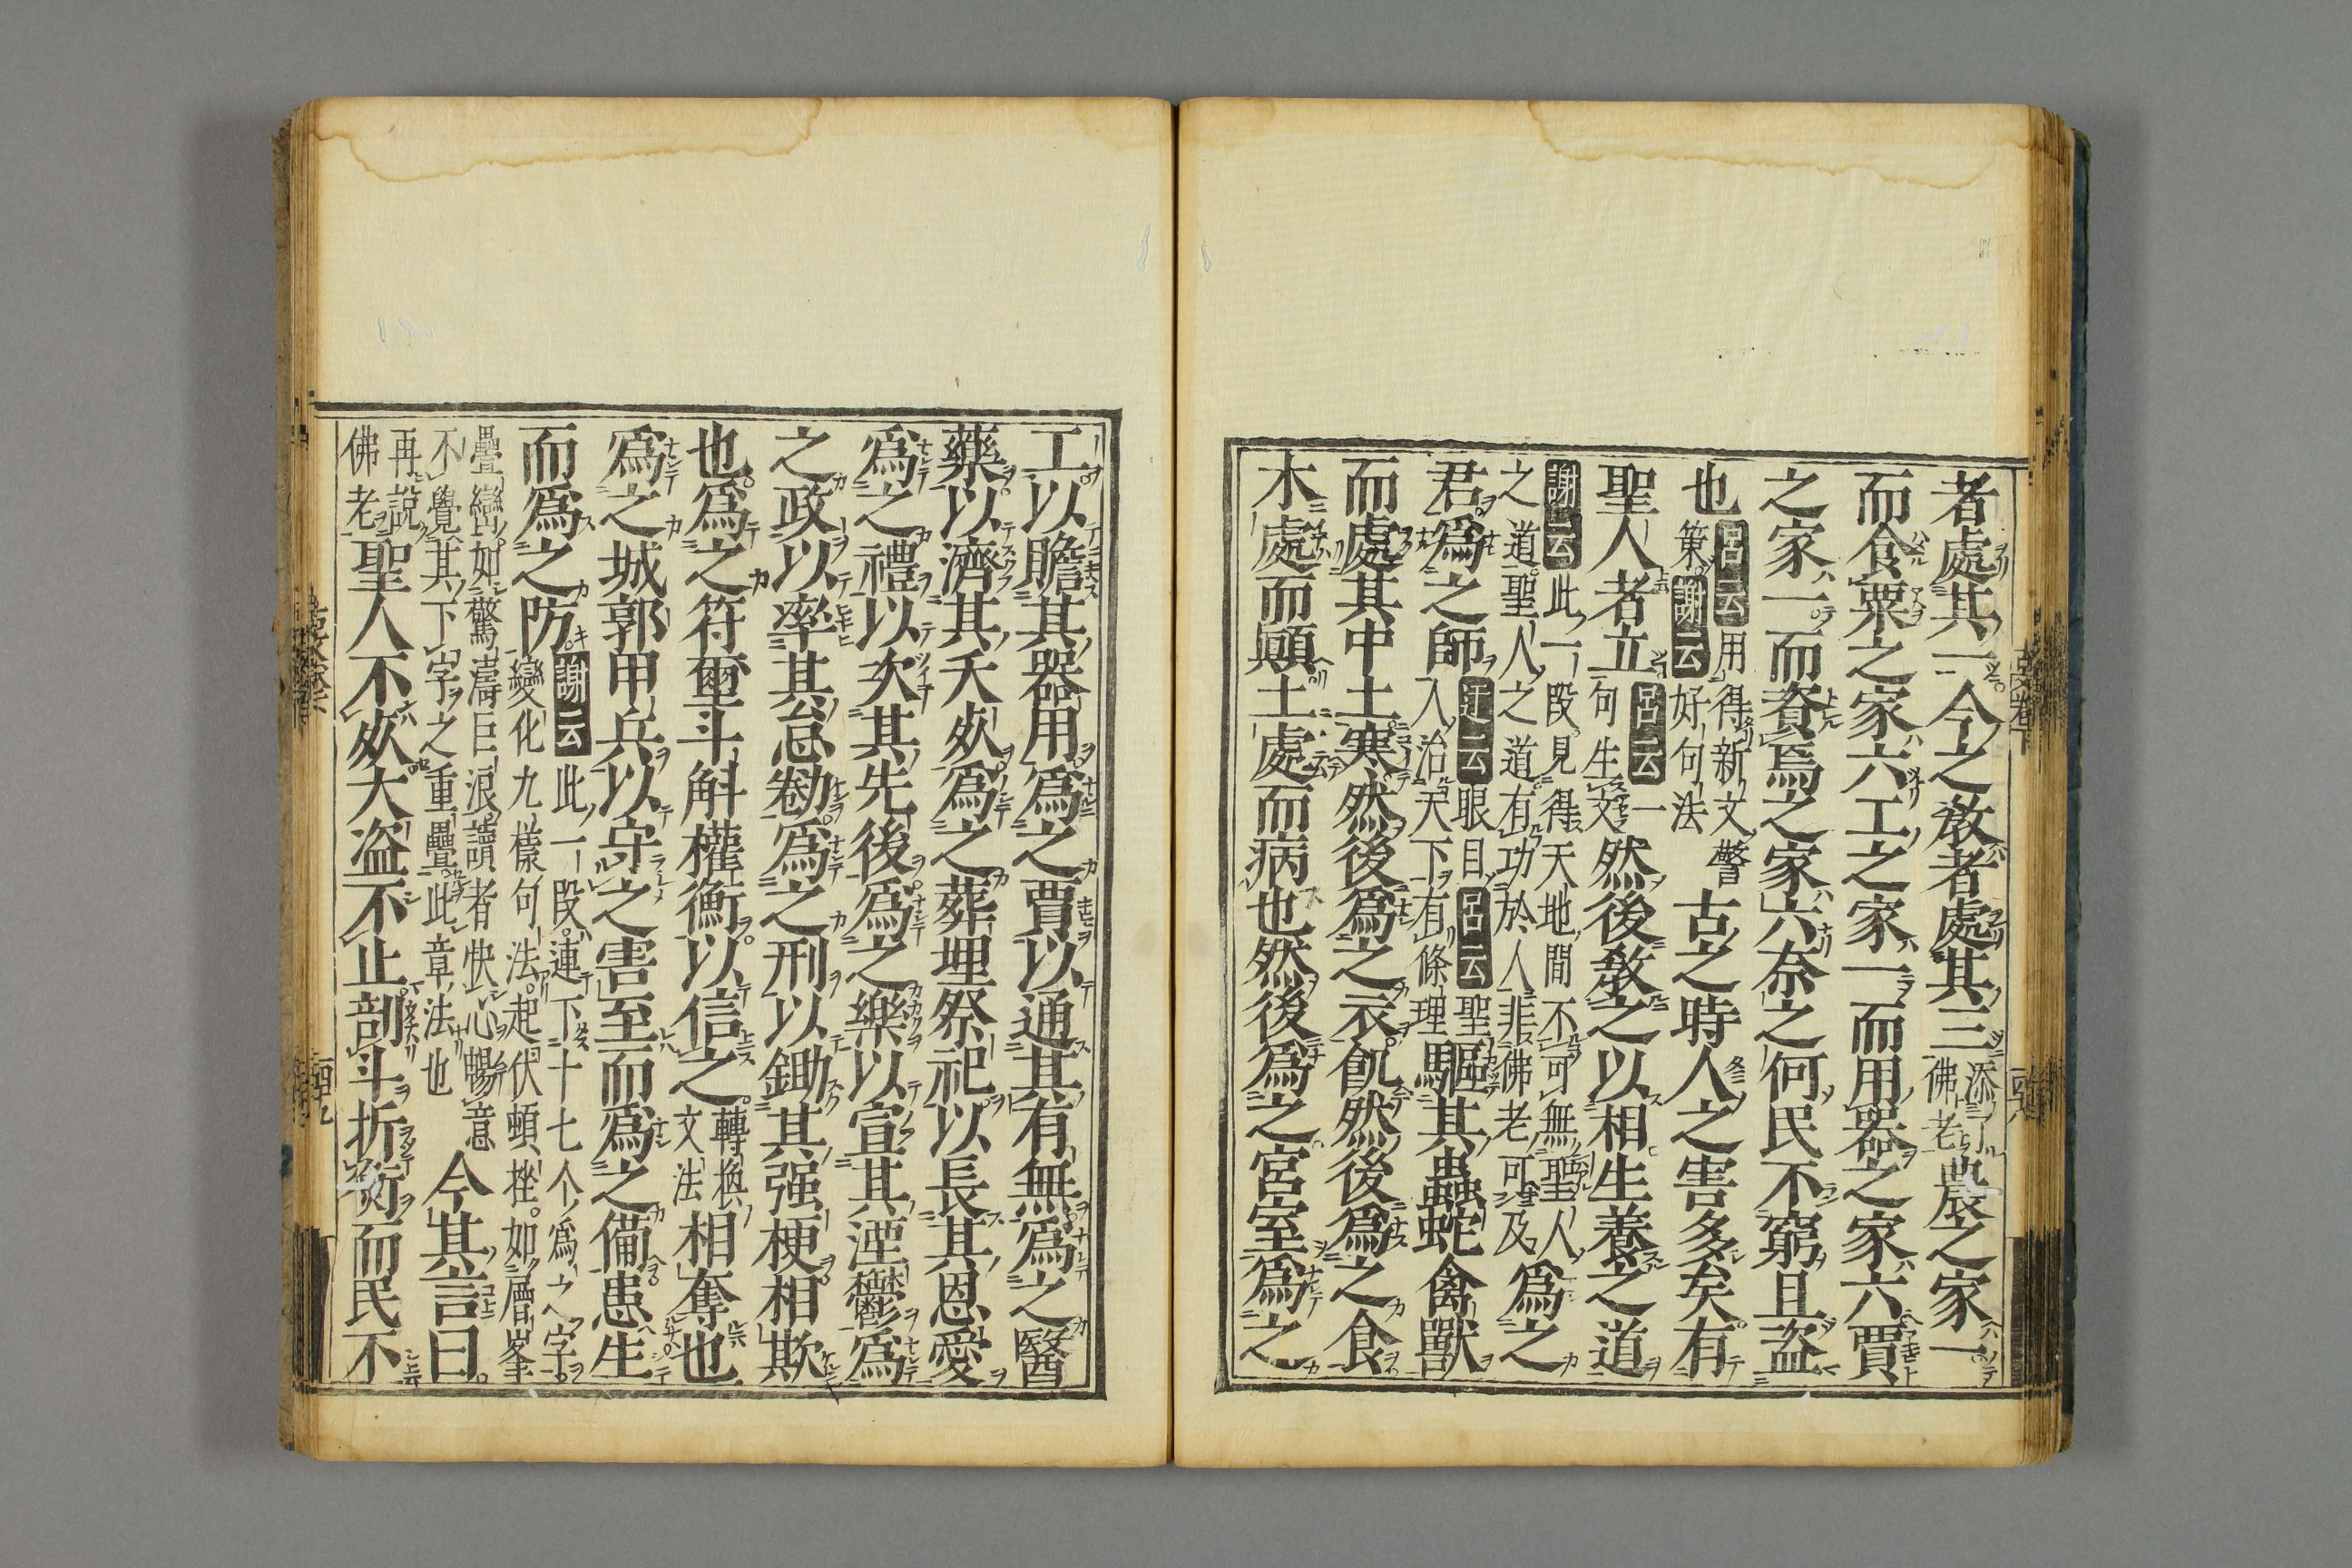 者處其一今之敎者處其三添了佛老農之家一
而食粟之家六工之家一而用器之家六賈
之家一而資焉之家六奈之何民不窮且盗
也呂云用得新文警策謝云好句法古之時人之害多矣有
聖人者立呂云一句生文然後敎之以相生養之道
謝云此一段見得天地間不可無聖人之道聖人之道有功於人非佛老可及爲之
君爲之師迂云眼目呂云聖人治天下有條理驅其蟲蛇禽獸
而處其中土寒然後爲之衣飢然後爲之食
木處而顚土處而病也然後爲之宮室爲之
工以贍其器用爲之賈以通其有無爲之醫
藥以濟其夭死爲之葬埋祭祀以長其恩愛
爲之禮以次其先後爲之樂以宣其湮鬱爲
之政以率其怠勌爲之刑以鋤其强梗相欺
也爲之符璽斗斛權衡以信之轉換文法相奪也
爲之城郭甲兵以守之害至而爲之備患生
而爲之防謝云此一段連下十七个爲之字變化九樣句法起伏頓挫如層峯
疊巒如驚濤巨浪讀者快心暢意不覺其下字之重疊此章法也今其言曰
再說佛老聖人不死大盗不止剖斗折衡而民不